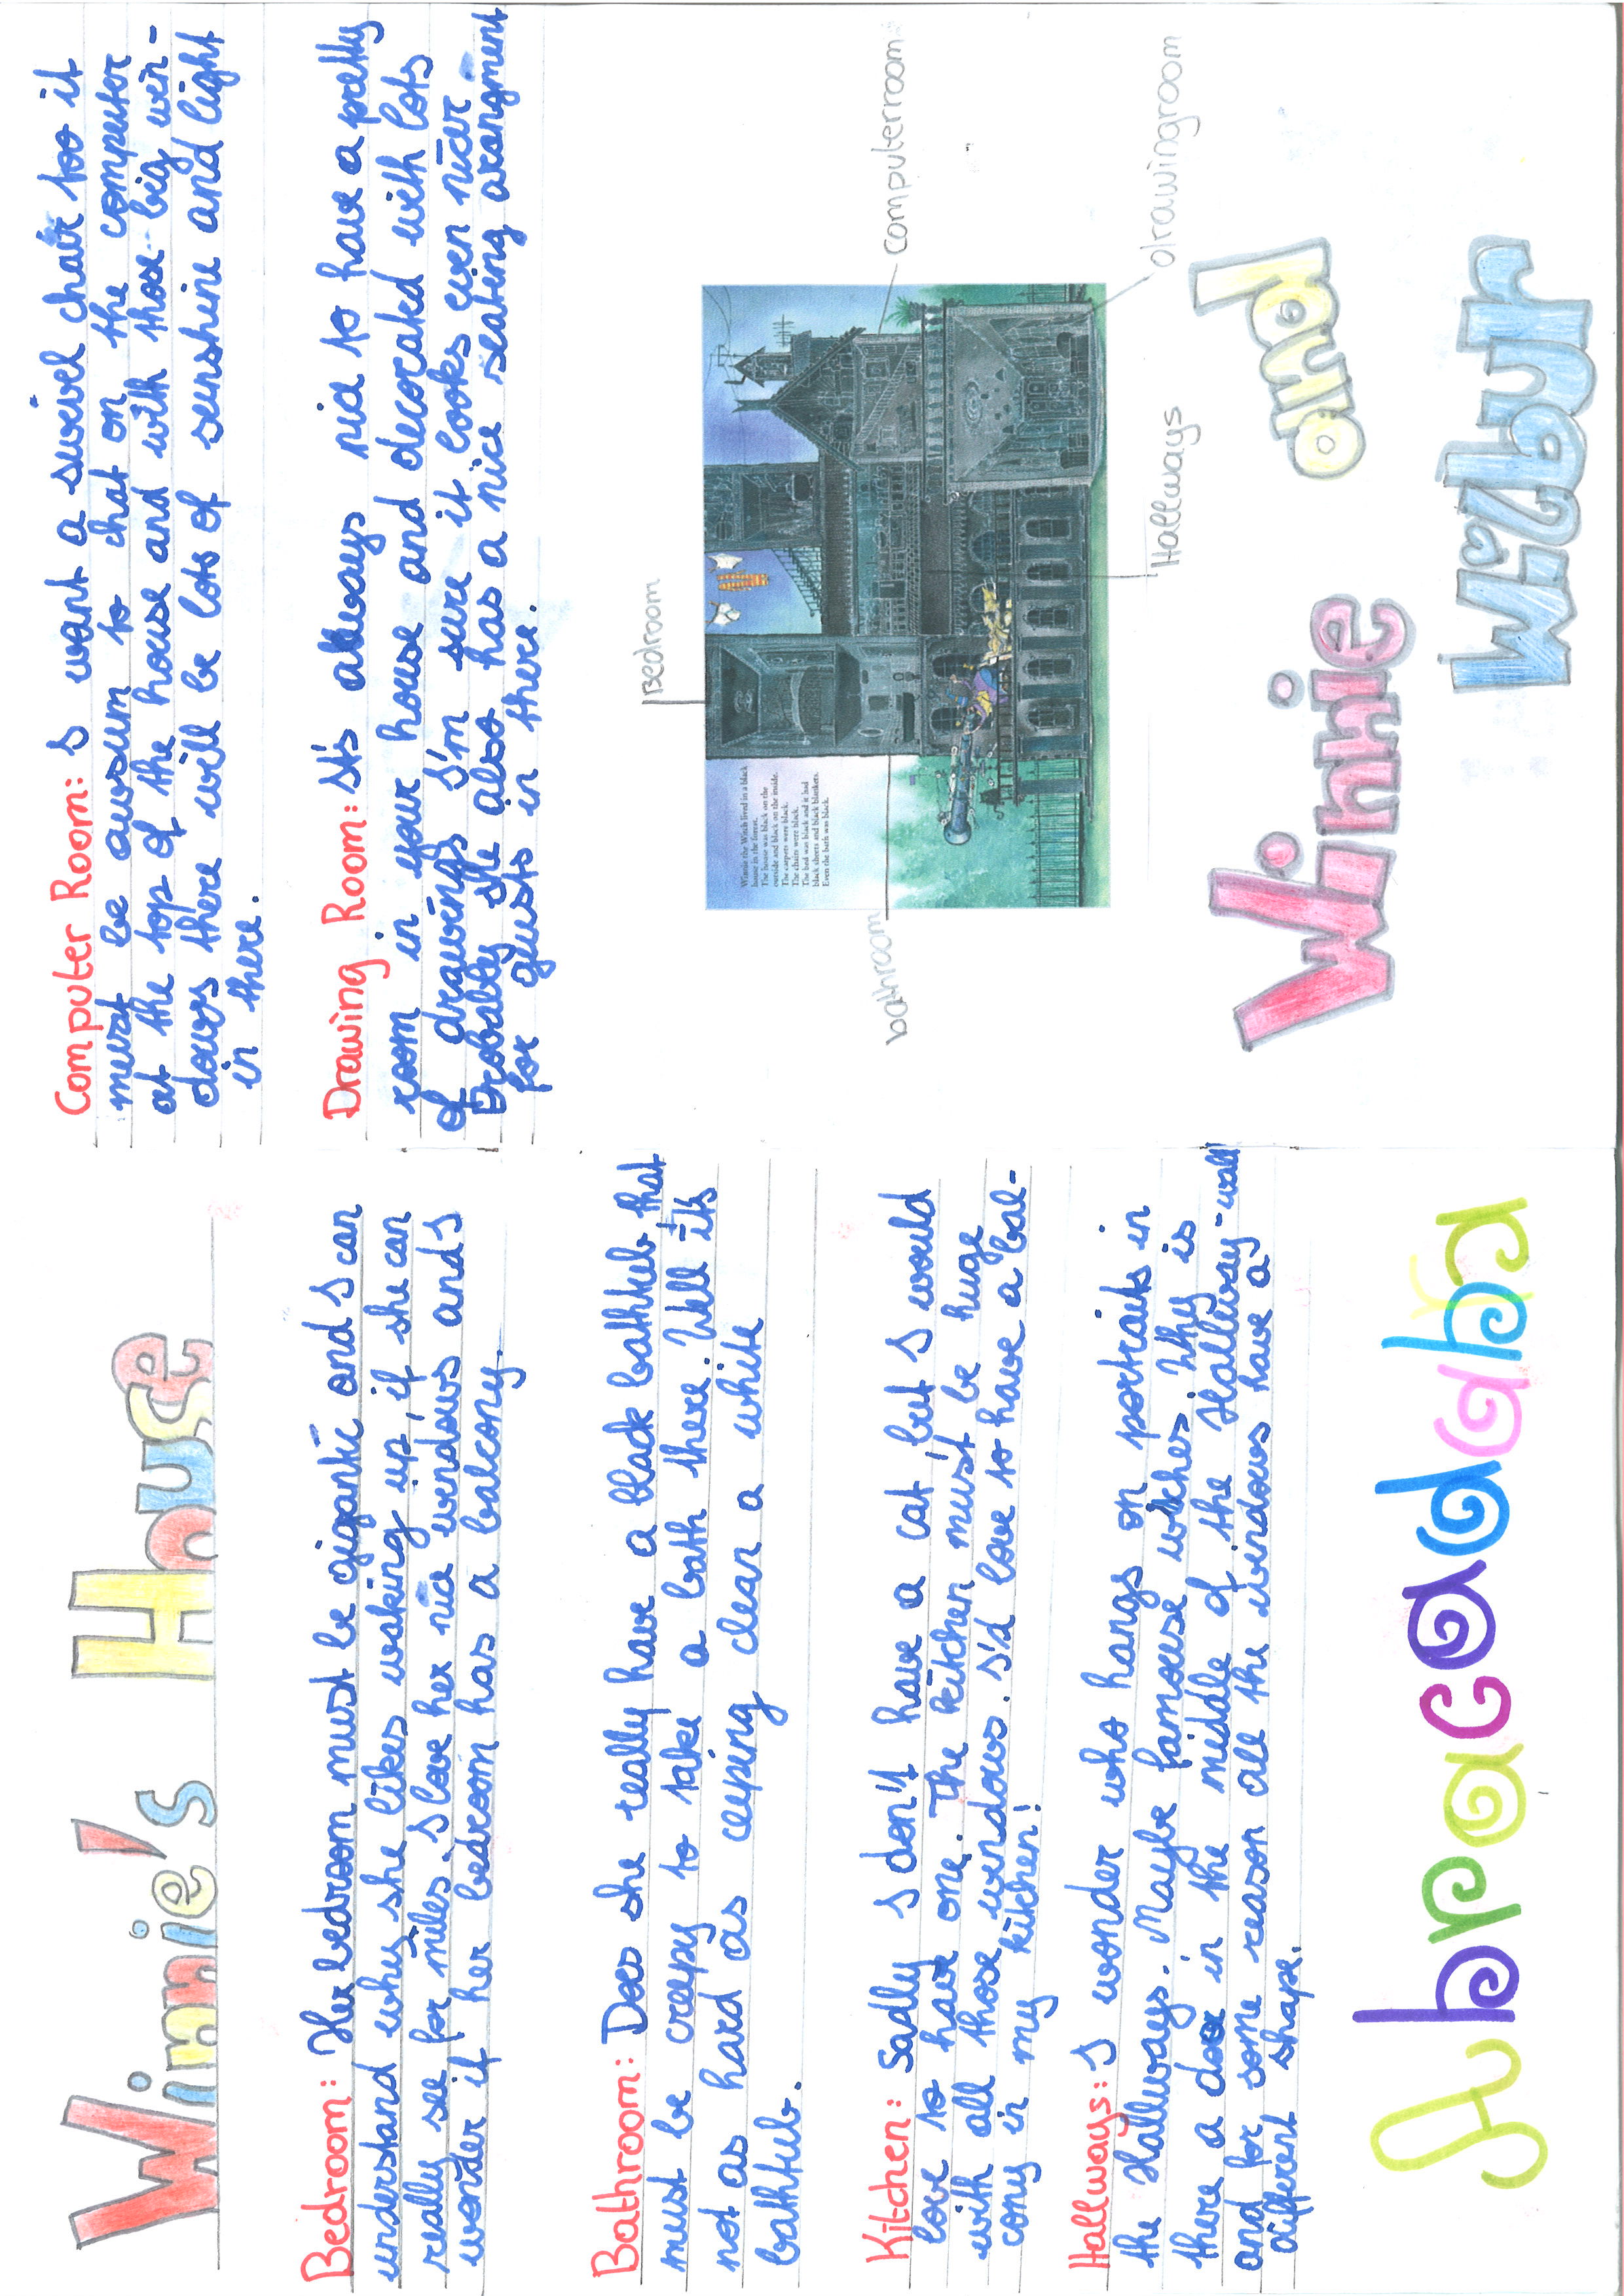 Winnie's House
Bedroom: Her bedroom must be gigantic and I can
understand why she likes waking up, if she can
really see for miles. I love her nice windows and I
wonder if her bedroom has a balcony.
Bathroom: Does she really have a black bathtub that
must be creapy to take a bath there. Well it's
not as hard as ceeping clean a white
bathtub.
Kitchen: Sadly I don't have a cat but I would
love to have one. The kitchen must be huge
with all those windows. I'd love to have a bal-
cony in my kitchen!
Hallways: I wonder who hangs on portraits in
the Hallways. Maybe famouse witches. Why is
there a door in the middle of the Hallway-wall
and for some reason all the windows have a
different shape.
Abracadabra
Computer Room: I want a swivel chair too it
must be awsum to chat on the computer
at the top of the house and with those big win-
dows there will be lots of sunshine and light
in there.
Drawing Room: It's always nice to have a pretty
room in your house and decorated with lots
of drawings I'm sure it looks even nicer.
Probably she also has a nice seating arangment
for guests in there.
Bedroom
computerroom
bathroom
Winnie the Witch lived in a black
house in the forest.
The house was black on the
outside and black on the inside.
The carpets were black.
The chairs were black.
The bed was black and it had
black sheets and black blankets.
Even the bath was black.
Hallways
drawingroom
Winnie and
Wilbur